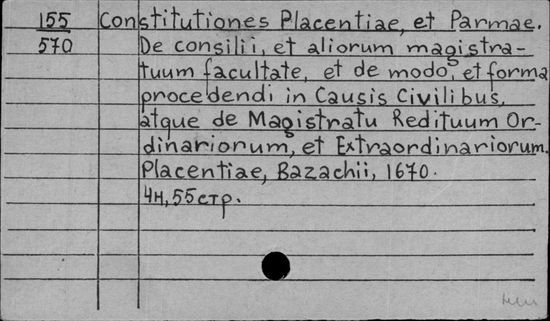 155 Constitutiones Placentiae, et Parmae.
570 De consilii, et aliorum magistra-
tuum facultate, et de modo, et forma
procedendi in Causis Civilibus,
atque de Magistratu Redituum Or-
dinariorum, et Extraordinariorum.
Placentiae, Bazachii, 1670.
4н, 55 стр.